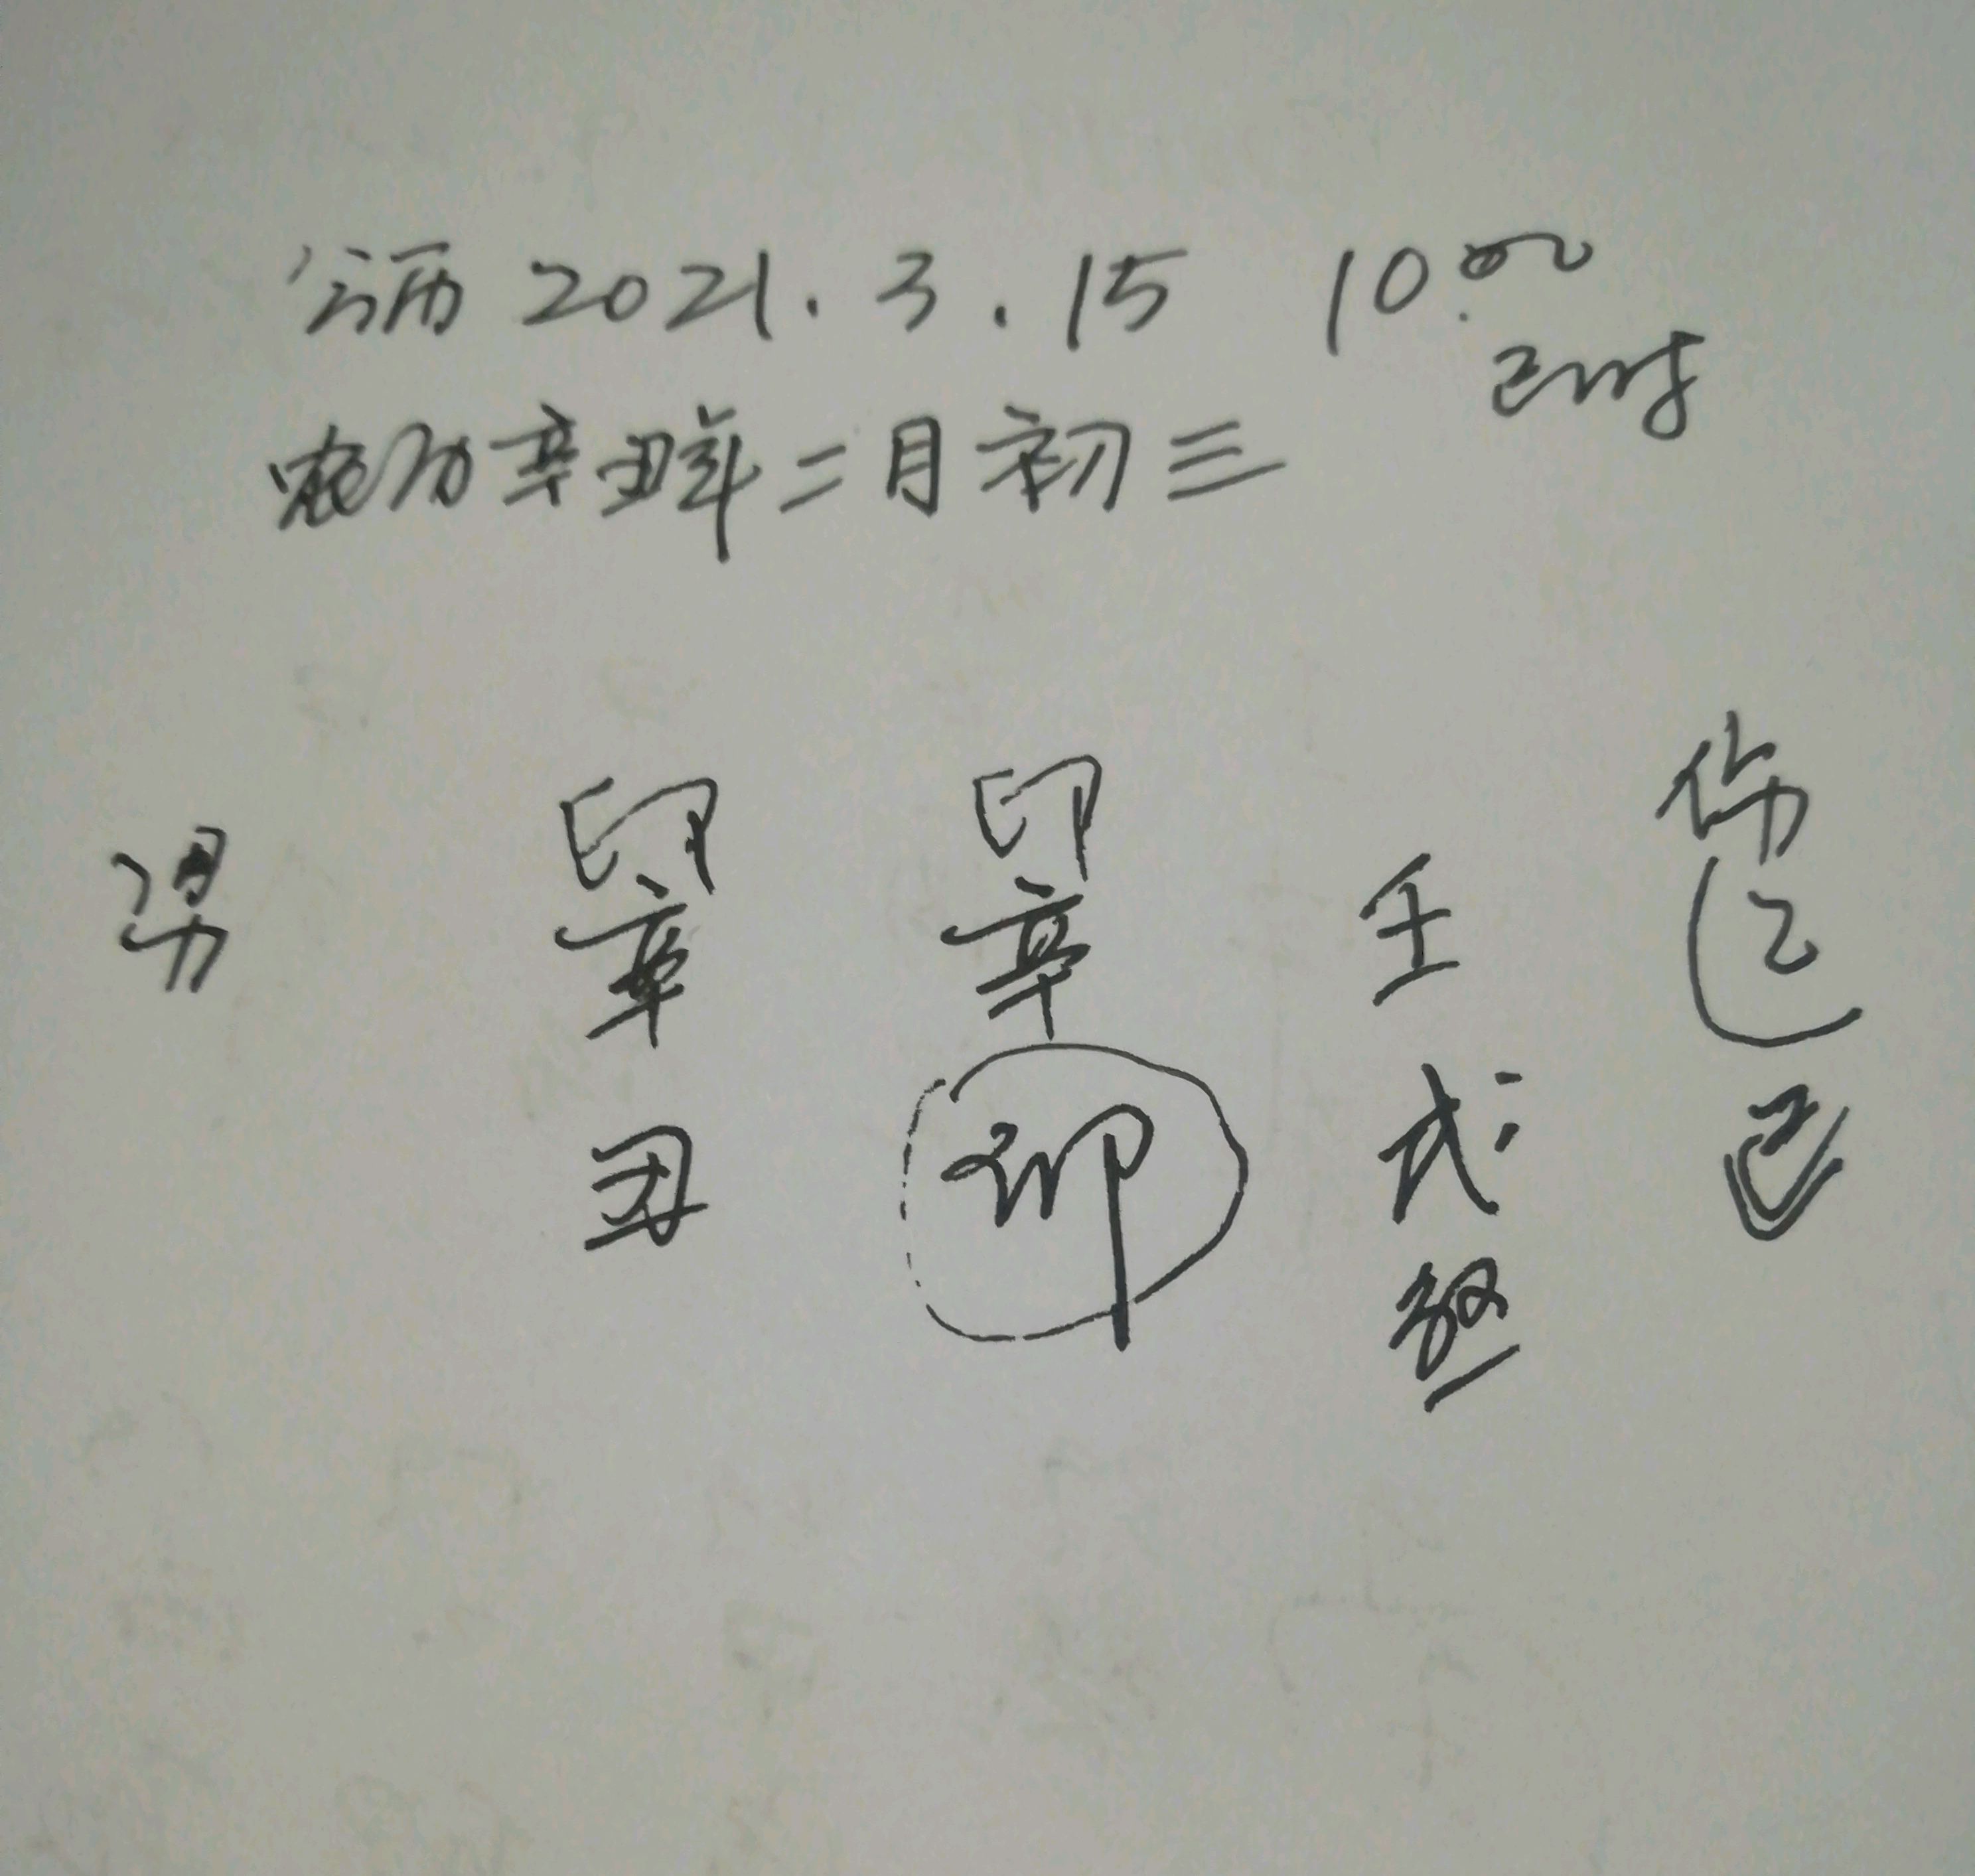 公历 2021.3.15 10:00
巳时
农历辛丑年二月初三
印 印 伤
男 辛 辛 壬 乙
丑 卯 戌 巳
杀